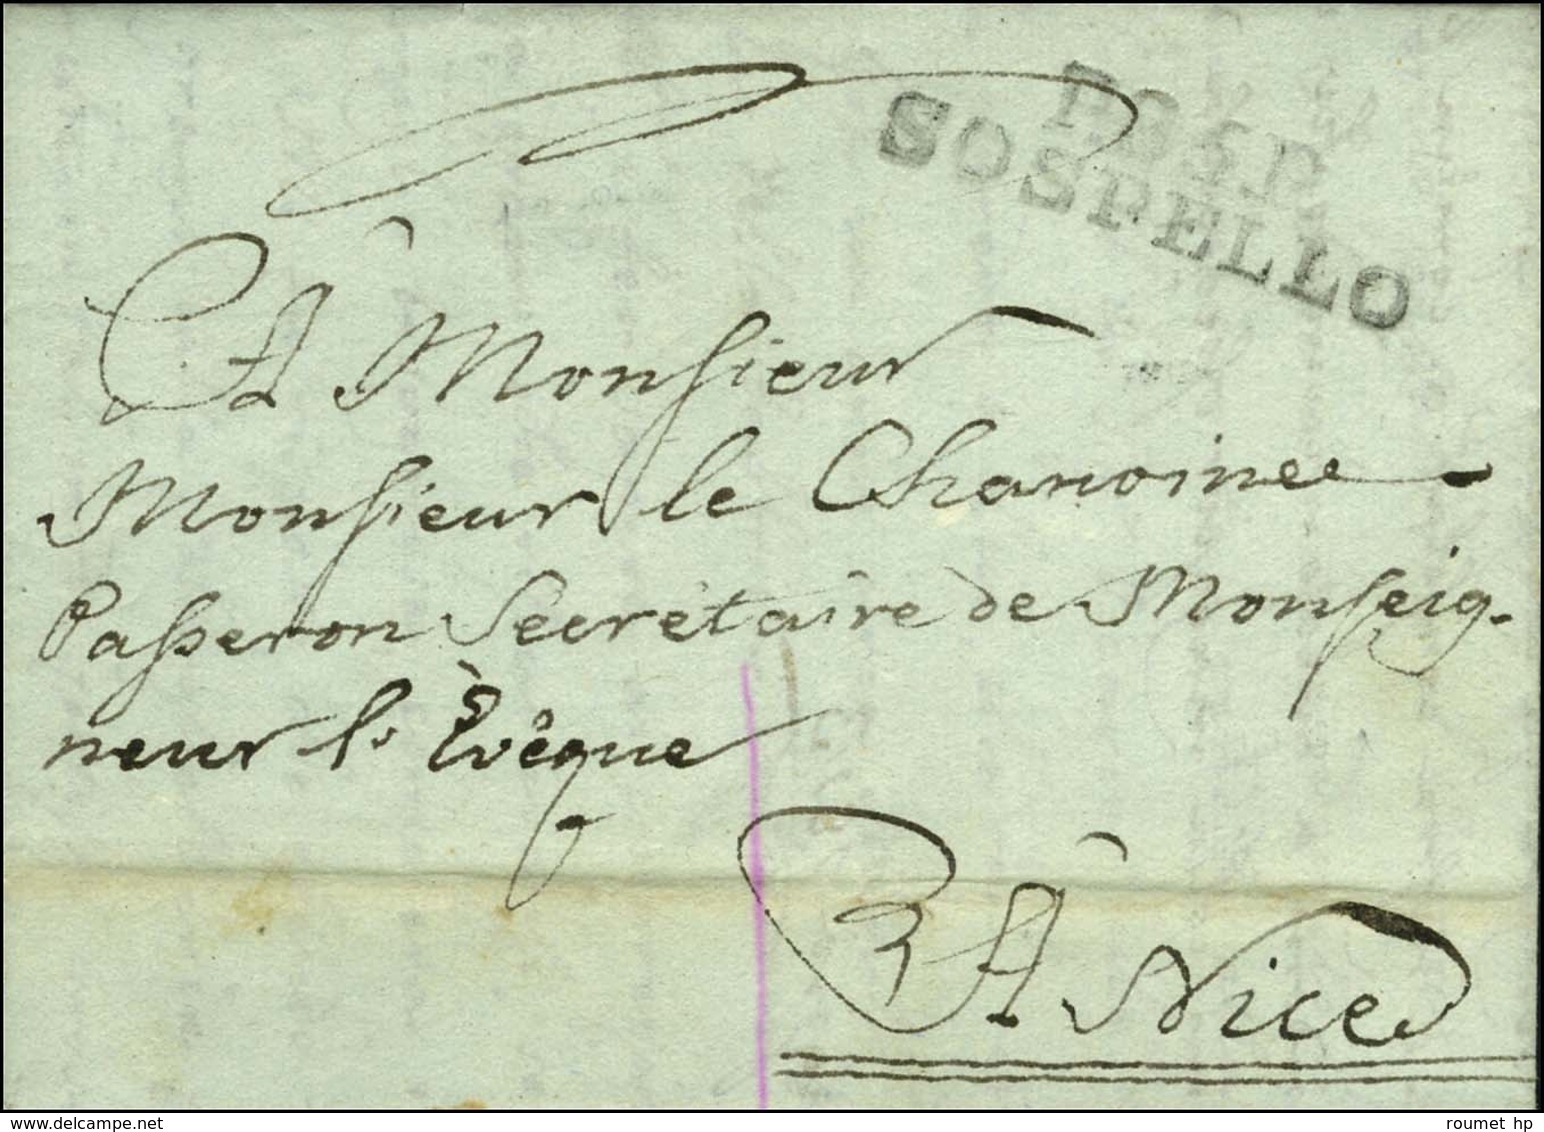 P.85.P.
SOSPELLO
À Monsieur
Monsieur le Chanoine
Passeron Secrétaire de Monseig-
neur l'Evêque
À Nice
delcampe.net
roumet hp